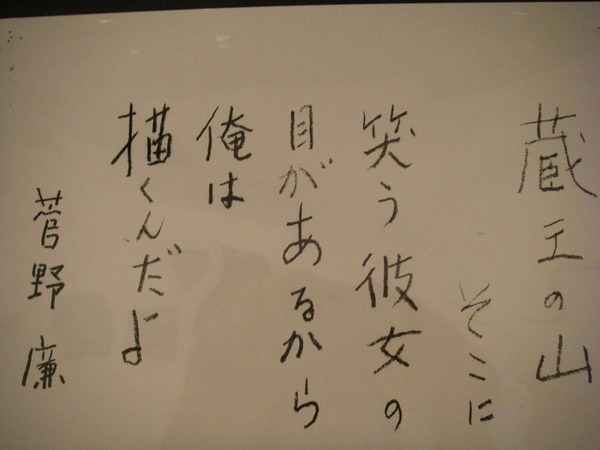 蔵王の山
そこに
笑う彼女の
目があるから
俺は
描くんだよ
菅野廉